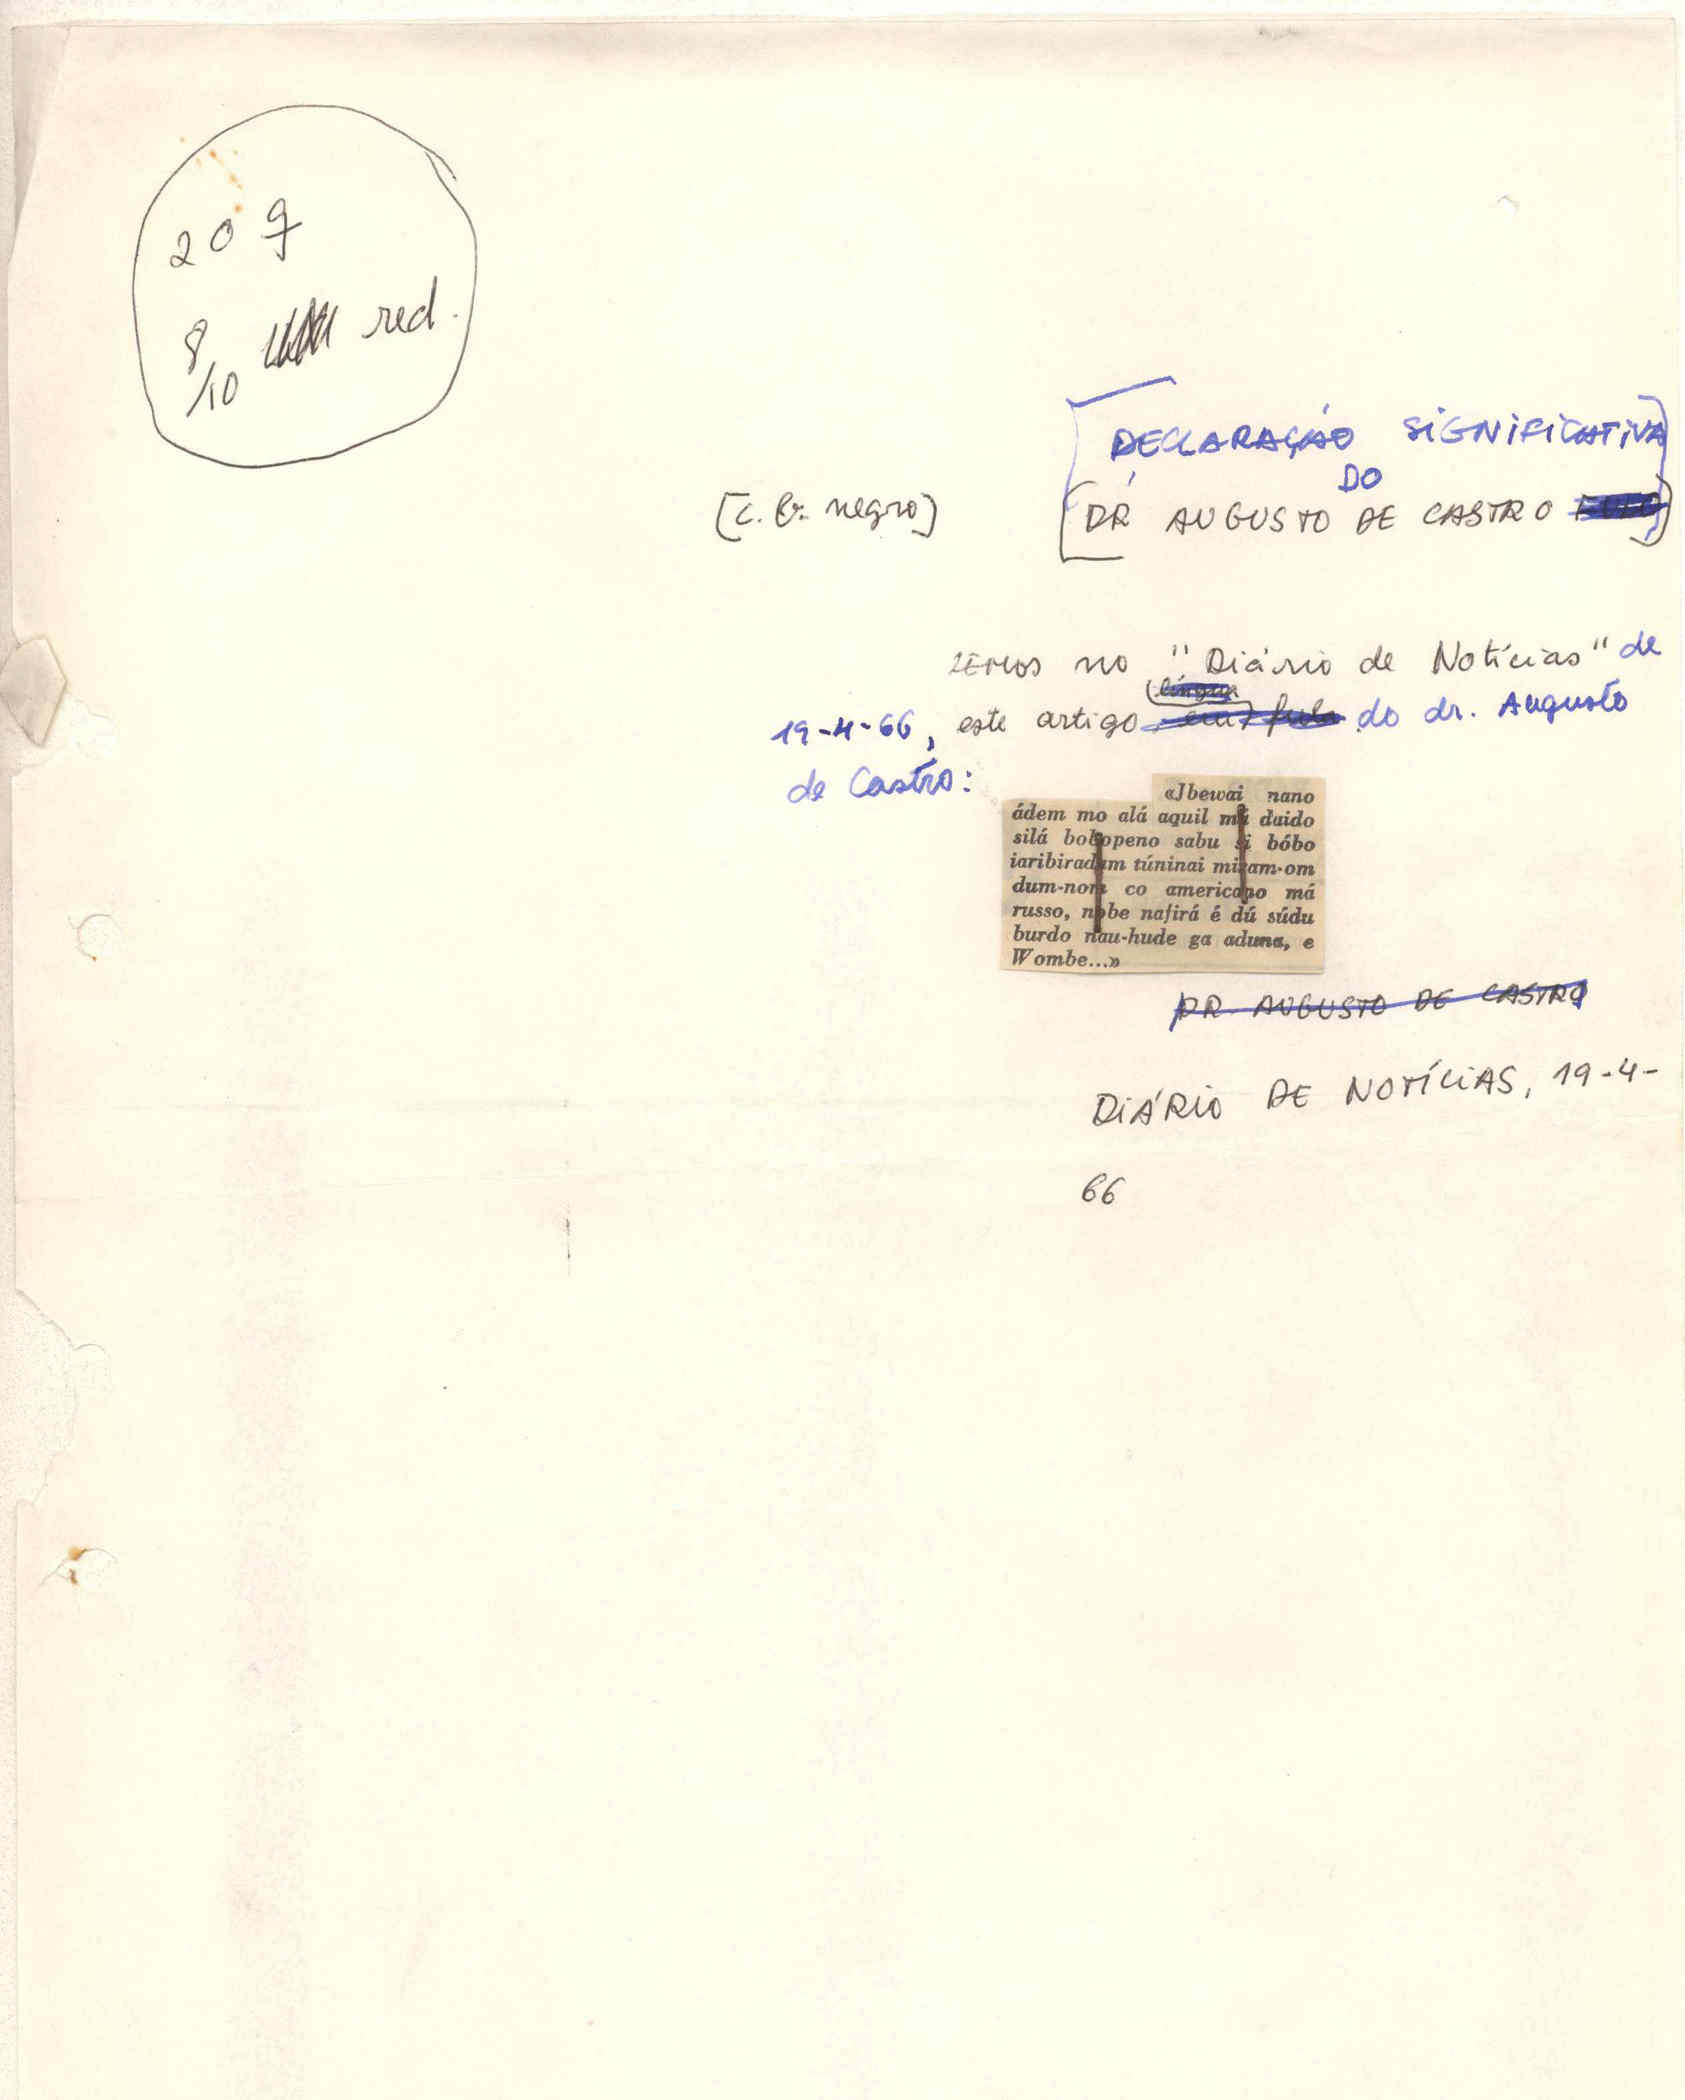 20 9
8/10 red.
DECLARAÇÃO SIGNIFICATIVA
DO
[c. b. negro]
DR AUGUSTO DE CASTRO
LEMOS no "Diário de Notícias" de
língua
19-4-66, este artigo em fula do dr. Augusto
de Castro:
«Jbewai nano
ádem mo alá aquil má duido
silá bobopeno sabu si bóbo
iaribiradam túninai miram-om
dum-nom co americano má
russo, nobe nafirá é dú súdu
burdo nau-hude ga aduna, e
Wombe...»
DR. AUGUSTO DE CASTRO
DIÁRIO DE NOTÍCIAS, 19-4-
66